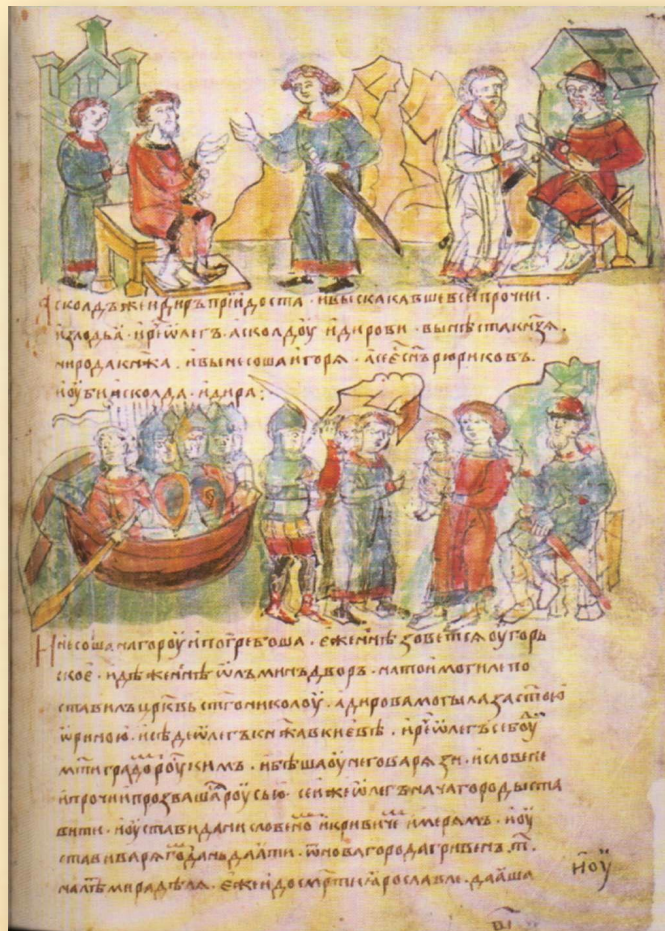 Асколдъ же и дир прїидоста · и выскакавше вси прочии ·
из лодьӕ · и рч҃е ѡлегъ · асколдоу и дирови · вы нѣста кн҃ѕѧ ·
ни рода кнѧжа · и вынесоша игорѧ · а се єс҃ сн҃ъ рюриковъ ·
и оубиша асколда · и дира ;
И несоша на гороу и погребоша · еже н҃нѣ зоветсѧ оугорь
скоє · идѣже н҃нѣ ѡлъминъ дворъ · на тои могиле по
ставилъ цр҃квь ст҃го николоу · а дирова могыла за ст҃ою
ѡриною · и сѣде ѡлегъ кнѧжа в киевѣ · и рч҃е ѡлегъ се боуⷣ
мт҃и градоⷨ роускимъ · и бѣша оу неговарѧзи · и словене
и прочии прозвашасѧ роусью · сеи же ѡлегъ нача городы ста
вити · и оустави дани словеноⷨ и кривичеⷨ и мерѧмъ · и оу
стави варѧгоⷨ дань даӕти · ѿ новагорода гривенъ · т҃ ·
на лѣт҃ мира дѣлѧ · еже и до см҃рти ӕрославле · даӕша